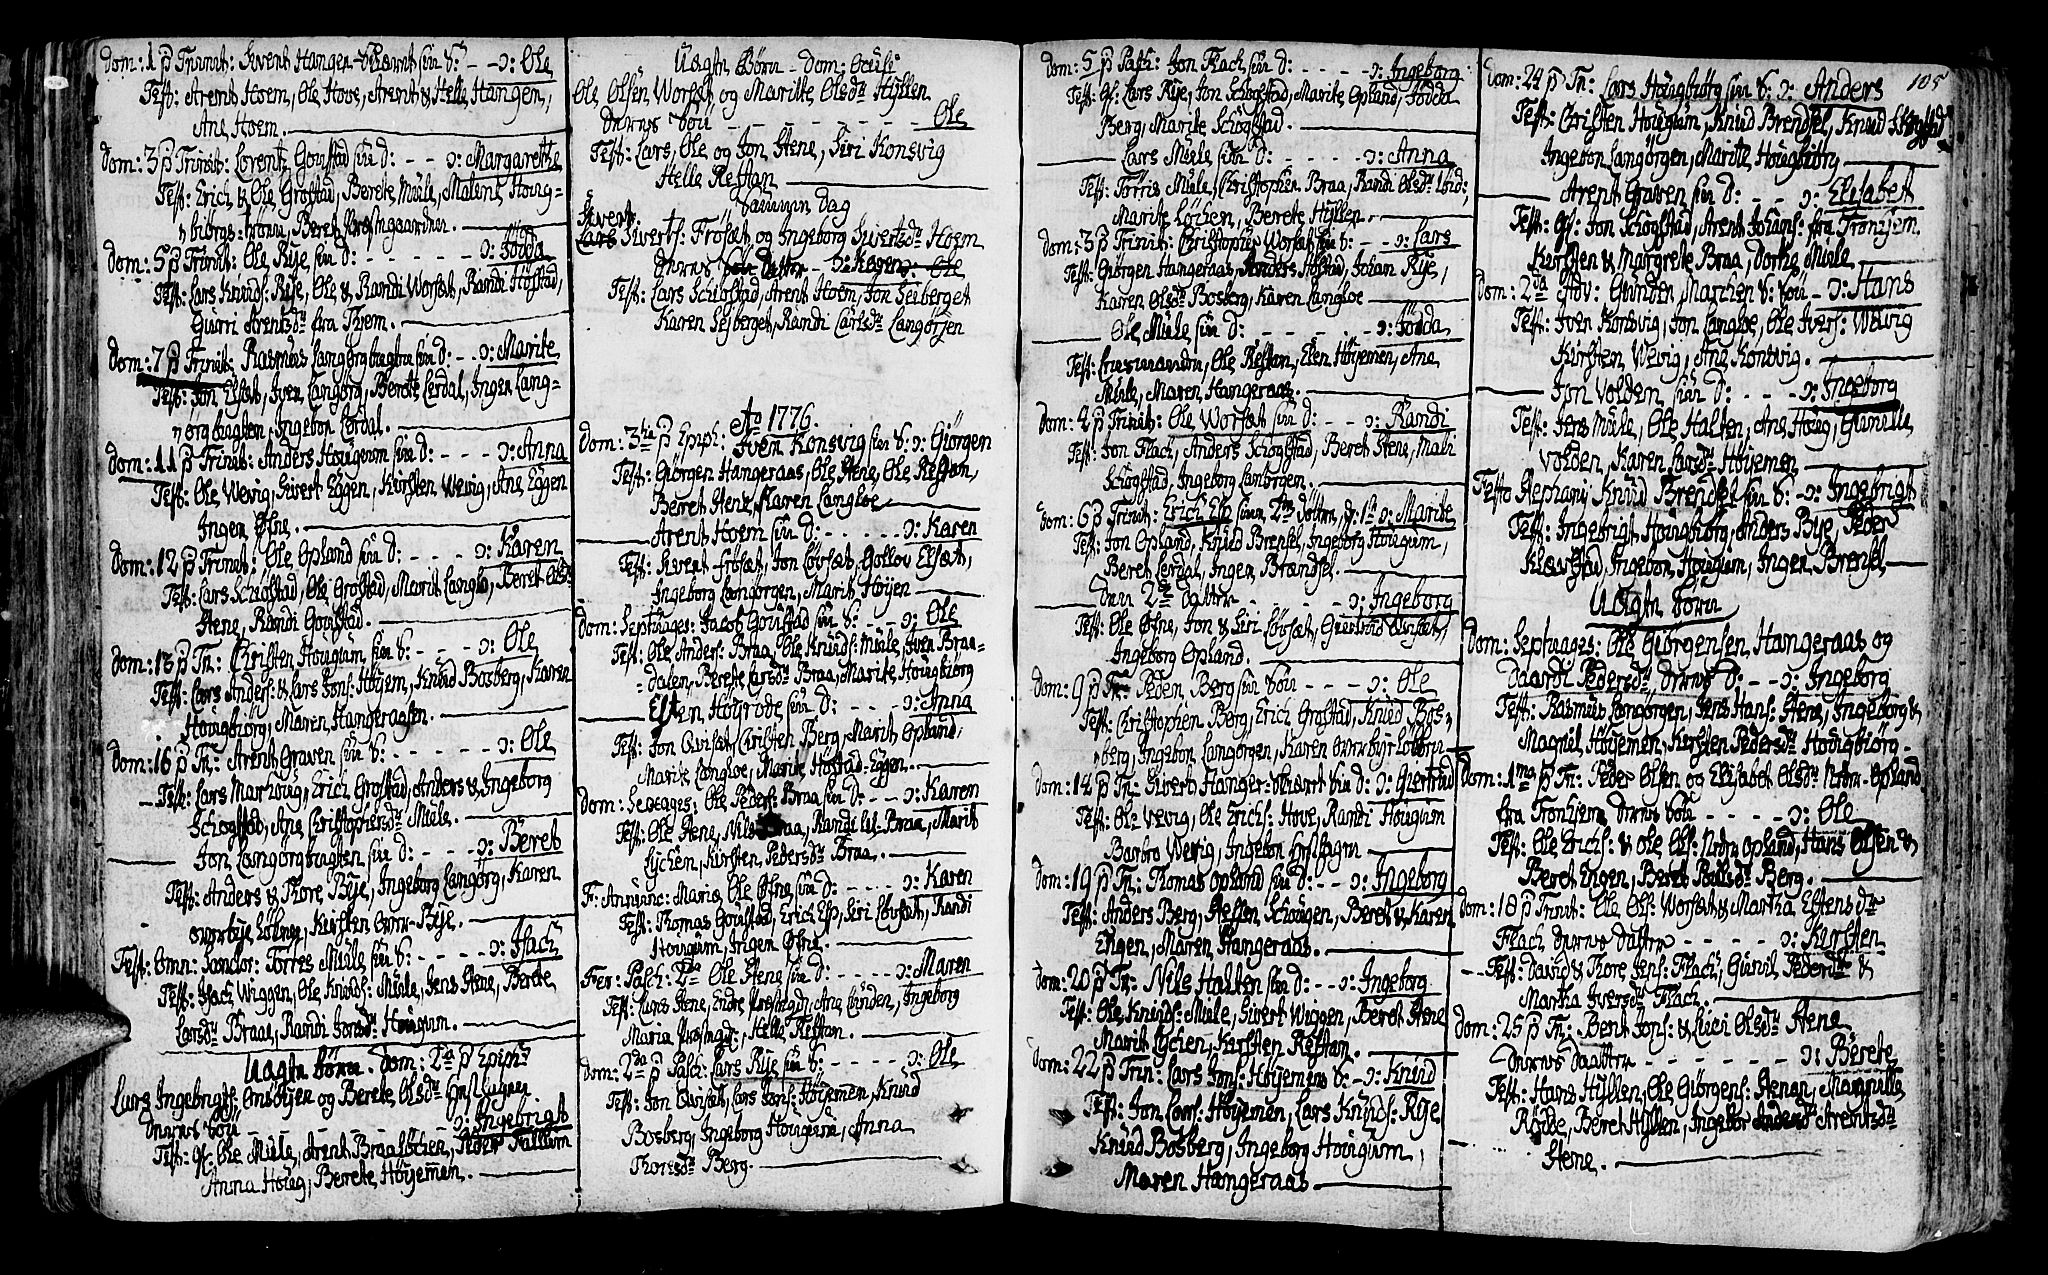 dom: 1 p Trinit: Sivert Hanger-Svaret sin S: - - ɔ: Ole
Test: Arent Hoem, Ole Hove, Arent & Helle Hangen,
Ane Hoem.
dom: 3 p Trinit: Lorentz Goustad sin d: - - - ɔ: Margarethe
Test: Erich & Ole Grostad, Berete Müle, Malent Houg-
Beret Præstgaarden
dom: 5 p Trinit: Ole Rye sin d: - - - - - - ɔ: Jodda
Test: Lars Knuds: Rye, Ole & Randi Worsæt, Randi Høstad,
Gurri Arentsdr fra Trem.
dom: 7 p Trinit: Rasmus Langørgbagten sin d: - - ɔ: Marite
Test: Jon Elsæt, Iver Langørg, Berete Lerdal, Inger Lang-
ørgbagten, Ingebor Lerdal.
dom: 11 p Trinit: Anders Hougum sin d: - - - ɔ: Anna
Test: Ole Wevig, Sivert Eggen, Kirsten Wevig, Ane Eggen
Ingen Øfne.
dom: 12 p Trinit: Ole Opland sin d: - - - ɔ: Karen
Test: Lars Schogstad, Ole Grostad, Marit Langlo, Beret Olsd:
Stene, Randi Goustad.
dom: 13 p Tr: Christen Hougum sin S: - - - ɔ: Ole
Test: Lars Anders: & Lars Jons: Høyem, Knud Bosberg, Karen
Hougbiørg, Maren Hangeraasen.
dom: 16 p Tr: Arent Graven sin S: - - - - - ɔ: Ole
Test: Lars Marhoug, Erich Grostad, Anders & Ingeborg
Schogstad, Ane Christophersdr Müle.
Jon Langørgbagten sin d: - - - ɔ: Beret
Test: Anders & Thore Bye, Ingeborg Langørg, Karen
overbye Kirsten over-Bye.
Fest: Omn: Sanctor: Torres Müle sin S: - - - - - ɔ: Isach
Test: Isach Wiggen, Ole Knuds: Müle, Jens Stene, Berete
Larsdr Braa, Randi Jonsdr Hougum.
Uægte Børn. Dom: 2da p Epiph:
Lars Ingebrigts: og Berete Olsdr
deres Søn - - - - - - - ɔ: Ingebrigt
Test: Ole Müle, Arent Braaløchen, Peder Fallum
Anna Houg, Berete Høyemen.
Uægte Børn - Dom: Oculi:
Ole Olsen Worsæt og Marite Olsdr Hyllen
deres Søn - - - - - - - - Ole
Test: Lars, Ole og Jon Stene, Siri Konsvig
Helle Restan
Samme Dag
Sivert
Lars Siverts: Frøsæt og Ingeborg Sivertsdr Hoem
deres Datter - ɔ: Karen: Ole
Test: Lars Schiogstad, Arent Hoem, Jon Leiberget
Karen Lejberget, Randi Carlsdr Langørgen
Ao 1776.
dom: 3tia p Epiph: Iver Konsvig sin S: ɔ: Giørgen
Test: Giørgen Hangeraas, Ole Stene, Ole Restan,
Beret Stene, Karen Langloe
Arent Hoem sin d: - - - - - ɔ: Karen
Test: Sivert Frøsæt, Jon Løvsæt, Gollov Elsæt,
Ingeborg Langørgen, Marit Hoyen
dom: Septuages: Jacob Goustad sin S: - - - ɔ: Ole
Test: Ole Anders: Braa, Ole Knuds: Müle, Iver Braa-
dalen, Berete Larsdr Braa, Marite Hougbiørg
Esten Høyrode sin d: - - - - ɔ: Anna
Test: Jon Qvisæt, Christen Berg, Marit Opland,
Marit Langloe, Marit Høstad-Eggen.
dom: Sexages: Ole Peders: Braa sin d: - - - ɔ: Karen
Test: Ole Stene, Nils Braa, Randi Braa, Marit
Lychen, Kirsten Pedersdr Braa.
F: Anunc: Mariæ Ole Øfne sin d: - - - - ɔ: Karen
Test: Thomas Goustad, Erich Esp, Siri Løvsæt, Randi
Hougum, Ingen Øfne.
Fer: Pasch: 2da Ole Stene sin d: - - - - ɔ: Maren
Test: Lars Stene, Endre Ane Lunden, Ingeborg
Maria Helle Restan.
dom: 2da p Pasch: Lars Rye sin S: - - - - - ɔ: Ole
Test: Jon Qvisæt, Lars Jons: Høyemen, Knud
Bosberg, Ingeborg Hougum, Anna
Thoresdr Berg.
dom: 5 p Pasch: Jon Flach sin d: - - - - - ɔ: Ingeborg
Test: Lars Rye, Jon Schogstad, Marite Opland, Jodda
Berg, Marite Schogstad.
Lars Müle sin d: - - - - - ɔ: Anna
Test: Torris Müle, Christopher Braa, Randi Olsdr ibid:
Marite Løchen, Berete Hyllen.
dom: 3 p Trinit: Christopher Worsæt sin S: - - ɔ: Lars
Test: Giørgen Hangeraas, Anders Høstad, Johan Rye,
Karen Olsdr Bosberg, Karen Langloe
Ole Müle sin d: - - - - - - - ɔ: Jodda
Test: Ole Restan, Elen Høyemen, Ane
Müle, Maren Hangeraas.
dom: 4 p Trinit: Ole Worsæt sin d: - - - ɔ: Randi
Test: Jon Flach, Anders Schogstad, Beret Stene, Mali
Schogstad, Ingeborg Langørgen.
dom: 6 p Trinit: Erich Esp sine 2de døttre, d: 1ste ɔ: Marite
Test: Jon Opland, Knud Brensel, Ingeborg Hougum,
Beret Lerdal, Ingen Brendsel.
den 2de datter - - - - - ɔ: Ingeborg
Test: Ole Øfne, Jon & Siri Løvsæt, Giertrud Qvisæt,
Ingeborg Opland.
dom: 9 p Tr: Peder Berg sin Søn - - - - ɔ: Ole
Test: Christopher Berg, Erich Grostad, Knud Bos-
berg, Ingebor Langørgen, Karen
dom: 14 p Tr: Sivert Hanger-Svaret sin d: ɔ: Giertrud
Test: Ole Wevig, Ole Erichs: Hove, Randi Hougum
Barbro Wevig, Ingebor
dom: 19 p Tr: Thomas Opland sin d: - - ɔ: Ingeborg
Test: Anders Berg, Steffen Schougen, Beret & Karen
Engen, Maren Hangeraas.
dom: 20 p Tr: Nils Halten sin d: - - ɔ: Ingeborg
Test: Ole Knuds: Müle, Sivert Wiggen, Beret Stene
Marit Lychen, Karsten Restan.
dom: 22 p Trin: Lars Jons: Høyemen S: - ɔ: Knud
Test: Jon Lars: Høyemen, Lars Knuds: Rye
Knud Bosberg, Ingeborg Hougum,
Maren Hangeraas
105
dom: 24 p Tr: Lars Hougbiørg sin S: ɔ: Anders
Test: Christen Hougum, Knud Brendsel, Knud
Ingebor Langørgen, Marite Hougbiørg
Arent Graven sin d: - - - ɔ: Elisabet
Test: Jon Schogstad, Arent Johans: fra Tronhjem
Kirsten & Margrete Braa, Dorthe Müle
dom: 2da Adv: Gunder Marchen S: Søn - ɔ: Hans
Test: Iver Konsvig, Jon Langloe, Ole Ivers: Wevig
Kirsten Wevig, Ane Konsvig.
Jon Volden sin d: - - - - ɔ: Ingeborg
Test: Jens Müle, Ole Halten, Ane Houg, Gunille
Volden, Karen Larsdr Høyemen
Festo Stephani Knud Brendsel sin S: - ɔ: Ingebrigt
Test: Ingebrigt Hougbiørg, Anders Bye, Peder
Klæstad, Ingebor Hougum, Ingen Brensel
Uægte Børn
Dom: Septuages: Ole Giørgensen Hangeraas og
Daardi Pedersdr deres d: - - ɔ: Ingeborg
Test: Rasmus Langørgen, Jens Hans: Stene, Ingeborg &
Magnil Høyemen, Kirsten Pedersdr Hougbiørg
Dom: 1ma p Tr: Peder Olsen og Elisabet Olsdr Opland
fra Tronhjem deres Søn - - - - - ɔ: Ole
Test: Ole Erichs: & Ole Ols: Opland, Hans Olsen &
Beret Engen, Beret Polsdr Berg.
dom: 18 p Trinit: Ole Ols: Worsæt & Martha Estensdr
Flach deres datter - - - - - ɔ: Kirsten
Test: David & Thore Jens: Flach, Gunil Pedersdr &
Martha Iversdr Flach.
Dom: 25 p Tr: Bent Jons: & Kiersti Olsdr Stene
deres daatter - - - - - - - ɔ: Berete
Test: Hans Hyllen, Ole Giørgens: Stenan, Magnille
Rødde, Beret Hyllen, Ingebor Arentsdr
Stene.